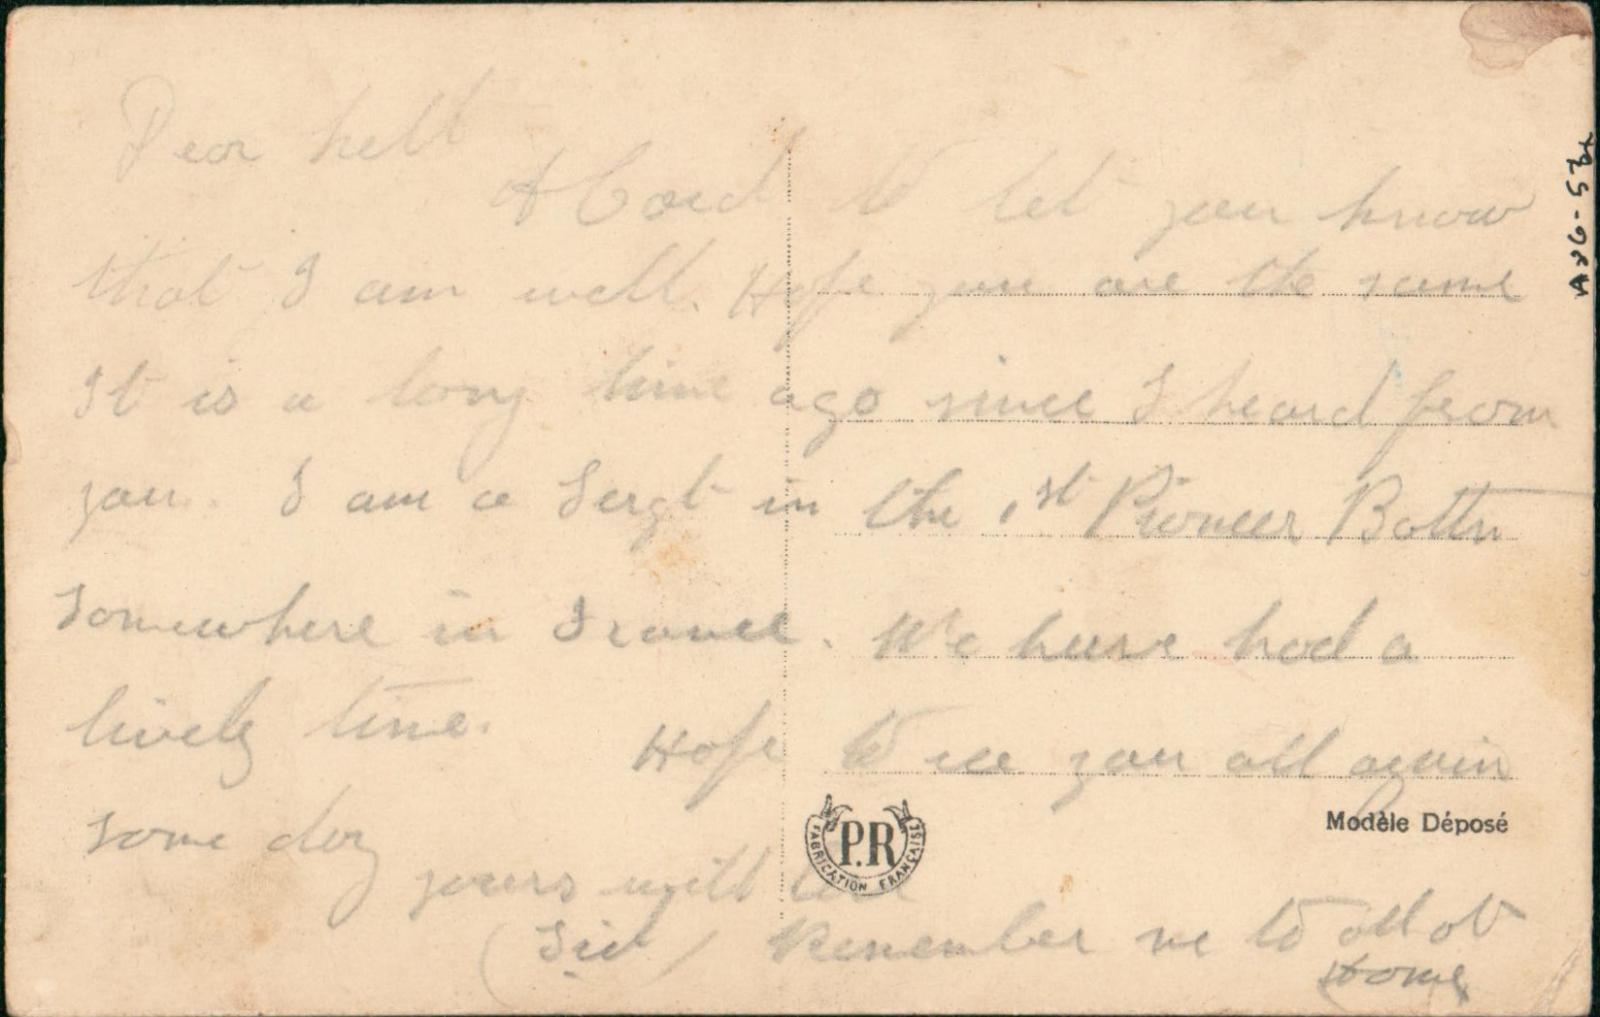 Dear Nell
A Card to let you know
that I am well. Hope you are the same
It is a long time ago since I heard from
you. I am a Sergt in the 1st Pioneer Battn
Somewhere in France. We have had a
lively time. Hope to see you all again
some day
yours with love
(Sid) Remember me to all at
Home
P.R
FABRICATION FRANÇAISE
Modèle Déposé